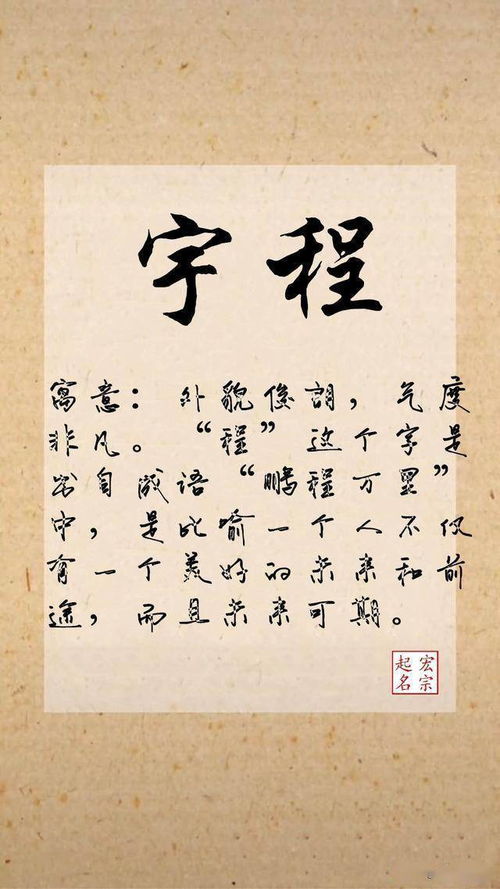 宇程
寓意：外貌俊朗，气度
非凡。“程”这个字是
出自成语“鹏程万里”
中，是比喻一个人不仅
有一个美好的未来和前
途，而且未来可期。
宏宗
起名